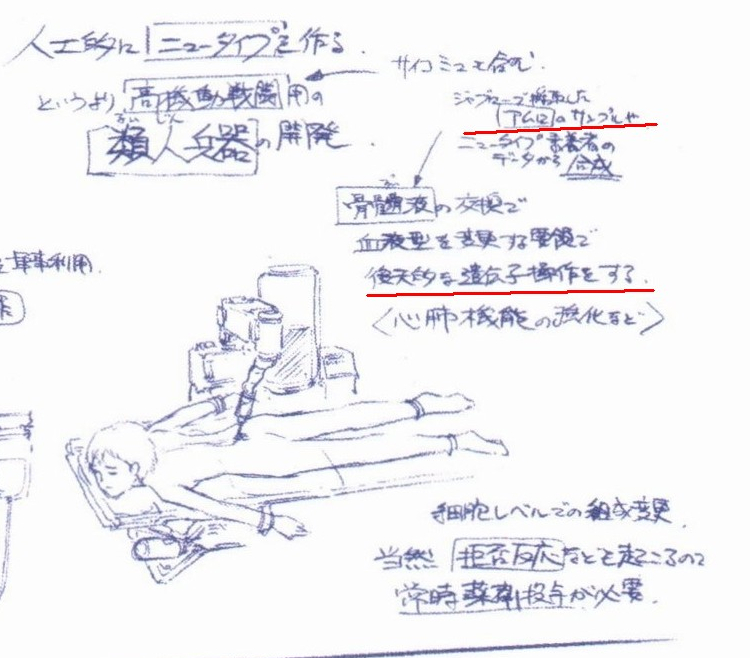 人工的に ニュータイプを作る.
というより 高機動戦闘用の
るい じん
類人兵器の開発.
サイコミュも含む.
ジャブローで採取した
「アムロ」のサンプルや
ニュータイプ素養者の
データから 合成
ずい
骨髄液の交換で
血液型を変更する要領で
後天的な遺伝子操作をする.
〈心肺機能の強化など〉
軍事利用.
細胞レベルでの組成変更.
当然 拒否反応なども起こるので
常時薬剤投与が必要.